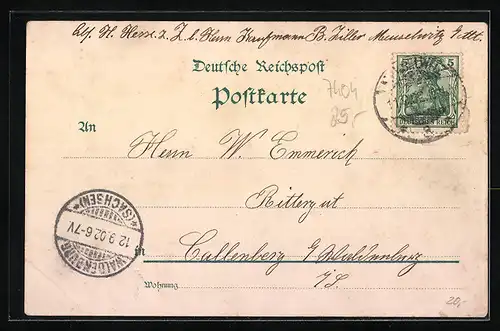 Abs. H. Hesse z. Z. b. Herrn Kaufmann B. Ziller Meuselwitz
Deutsche Reichspost
Postkarte
5
DEUTSCHES REICH
7404
25,-
An
Herrn W. Emmerich
Rittergut
in Callenberg b/Waldenburg
i/S.
Wohnung
WALDENBURG
*(SACHSEN)*
12.9.02.6-7V
20,-